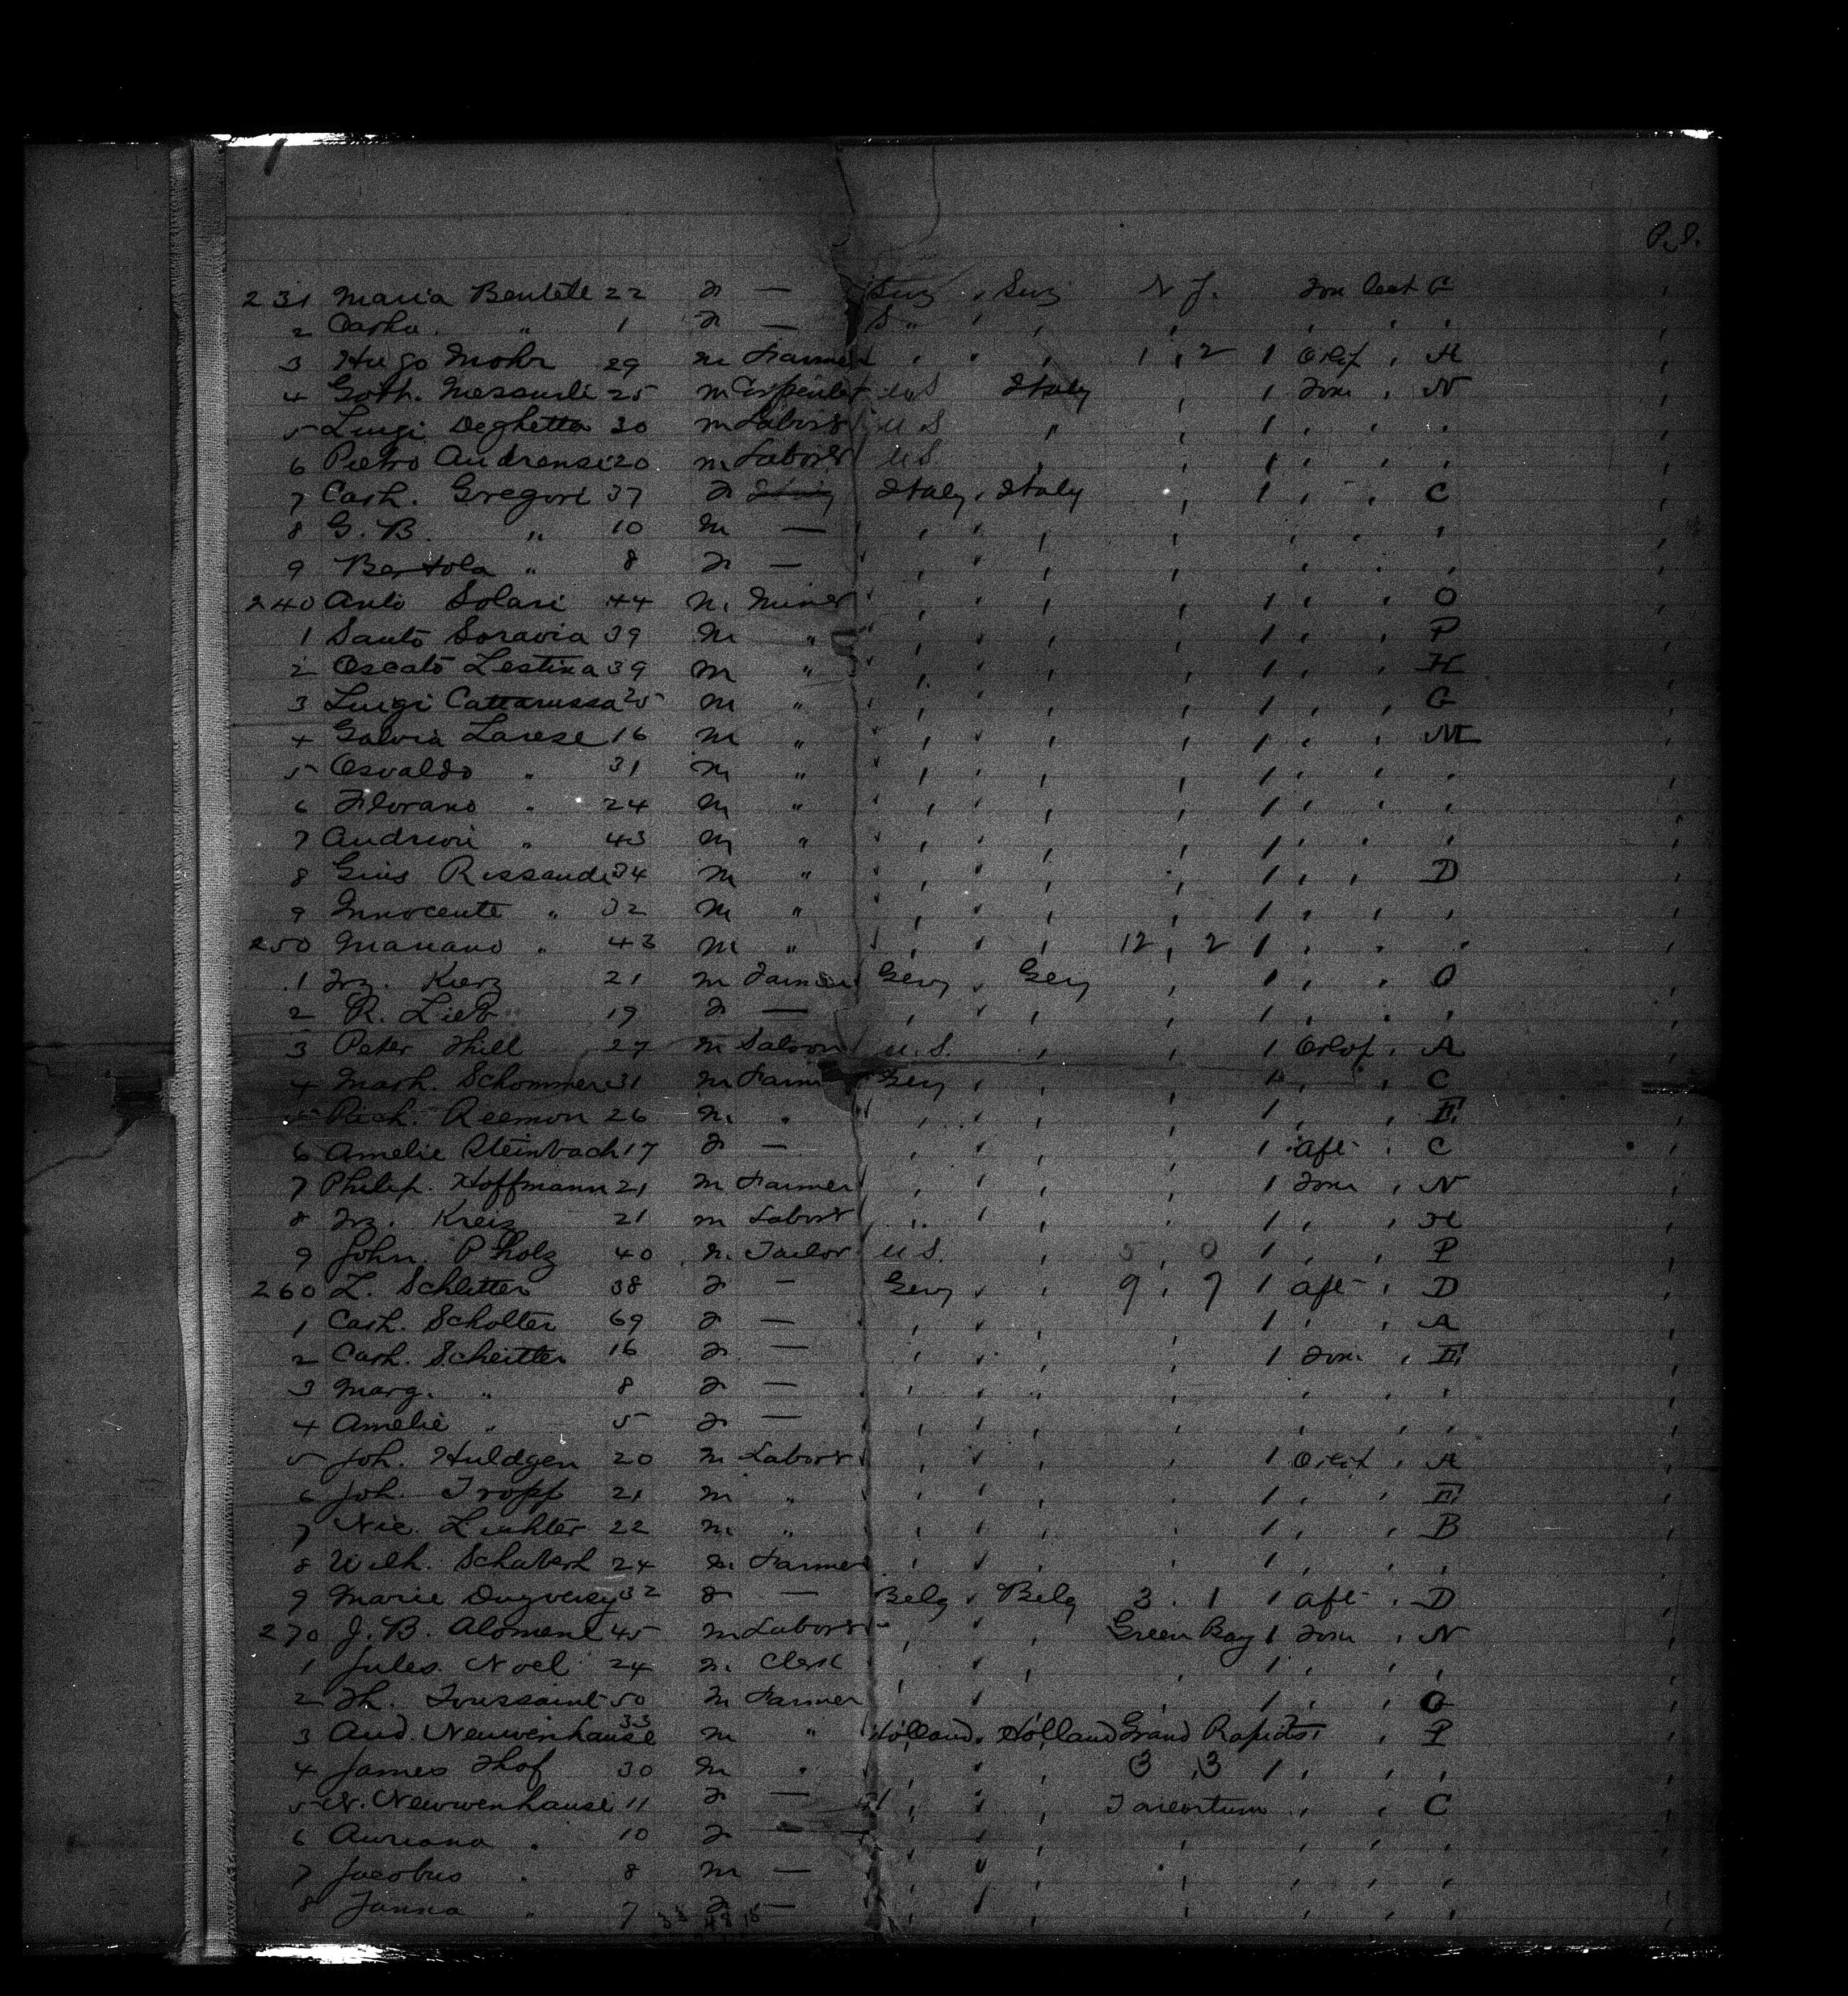 P. S.
231 Maria Bentele 22 F — Swz " Swz N. J. For Cast G
2 " 1 F — S " ' ' ' ' ' '
3 Hugo Mohr 29 M Farmer ' ' ' 1 , 2 1 Orlf ' H
4 Goth. 25 M Carpenter U S Italy ' 1 For ' N
5 Luigi Deghetto 30 M Labort U S " ' 1 ' ' '
6 Pietro 20 M Labort U S. ' ' 1 ' ' '
7 Cath. Gregori 37 F Italy ' Italy ' 1 ' ' C
8 G. B. " 10 M — ' ' ' ' ' ' '
9 Bertola " 8 F — ' ' ' ' ' ' '
240 Anto Solari 44 M. Miner ' ' ' ' 1 ' ' O
1 Santo Soravia 39 M " ' ' ' ' 1 ' ' P
2 Lestina 39 M " ' ' ' ' 1 ' ' H
3 Luigi Cattarussa 25 M " ' ' ' ' 1 ' ' G
4 Larese 16 M " ' ' ' ' 1 ' ' M
5 Osvaldo " 31 M " ' ' ' ' 1 ' ' '
6 Florano " 24 M " ' ' ' ' 1 ' ' '
7 " 43 M " ' ' ' ' 1 ' ' '
8 Gius 34 M " ' ' ' ' 1 ' ' D
9 Innocente " 32 M " ' ' ' ' 1 ' ' '
250 Mariano " 43 M " ' ' ' 12 , 2 1 ' ' '
1 Frz. Kierz 21 M Farmer Gery ' Gery ' 1 ' ' O
2 R. Lieb 19 F — ' ' ' ' 1 ' ' '
3 Peter Thill 27 M Saloon U. S. ' ' 1 Orlof ' A
4 Math. Schommer 31 M Farm Gery ' ' ' 1 ' ' C
5 Reemon 26 M. " ' ' ' ' 1 ' ' E
6 Amelie Steinbach 17 F — ' ' ' ' 1 Aft ' C
7 Philip. Hoffmann 21 M Farmer ' ' ' ' 1 For ' N
8 Frz. Kreiz 21 M Labort ' ' ' ' 1 ' ' H
9 John. P. Holz 40 M. Tailor U S. ' 5 , 0 1 ' ' P
260 L. Schletter 38 F — Gery ' ' 9 , 7 1 Aft ' D
1 Cath. Scholter 69 F — ' ' ' ' 1 ' ' A
2 Cath. Scheitter 16 F — ' ' ' ' 1 For ' E
3 Marg. " 8 F — ' ' " ' ' ' '
4 Amelie " 5 F — ' ' ' ' ' ' '
5 Joh. Huldgen 20 M Labort ' ' ' ' 1 ' A
6 Joh. Tropf 21 M " ' ' ' ' 1 ' ' E
7 Nic. 22 M. " ' ' ' ' 1 ' ' B
8 Wilh. 24 M. Farmer ' ' ' ' 1 ' ' '
9 Marie 32 F — Belg ' Belg 3 . 1 1 Aft ' D
270 J. B. 45 M Labort " ' ' ' Green Bay 1 For ' N
1 Jules Noel 24 M. Clerk ' ' ' ' 1 ' ' '
2 Th. Toussaint 50 M Farmer ' ' ' ' 1 ' ' G
3 And. Neuwenhause 33 M " Holland ' Holland Grand Rapids 1 ' P
4 James Thof 30 M " ' ' ' 3 , 3 1 ' ' '
5 N. Neuwenhause 11 F — ' ' ' ' ' C
6 " 10 F — ' ' ' ' ' '
7 Jacobus " 8 M — ' ' ' ' ' '
8 Janna " 7 F — ' ' ' ' ' '